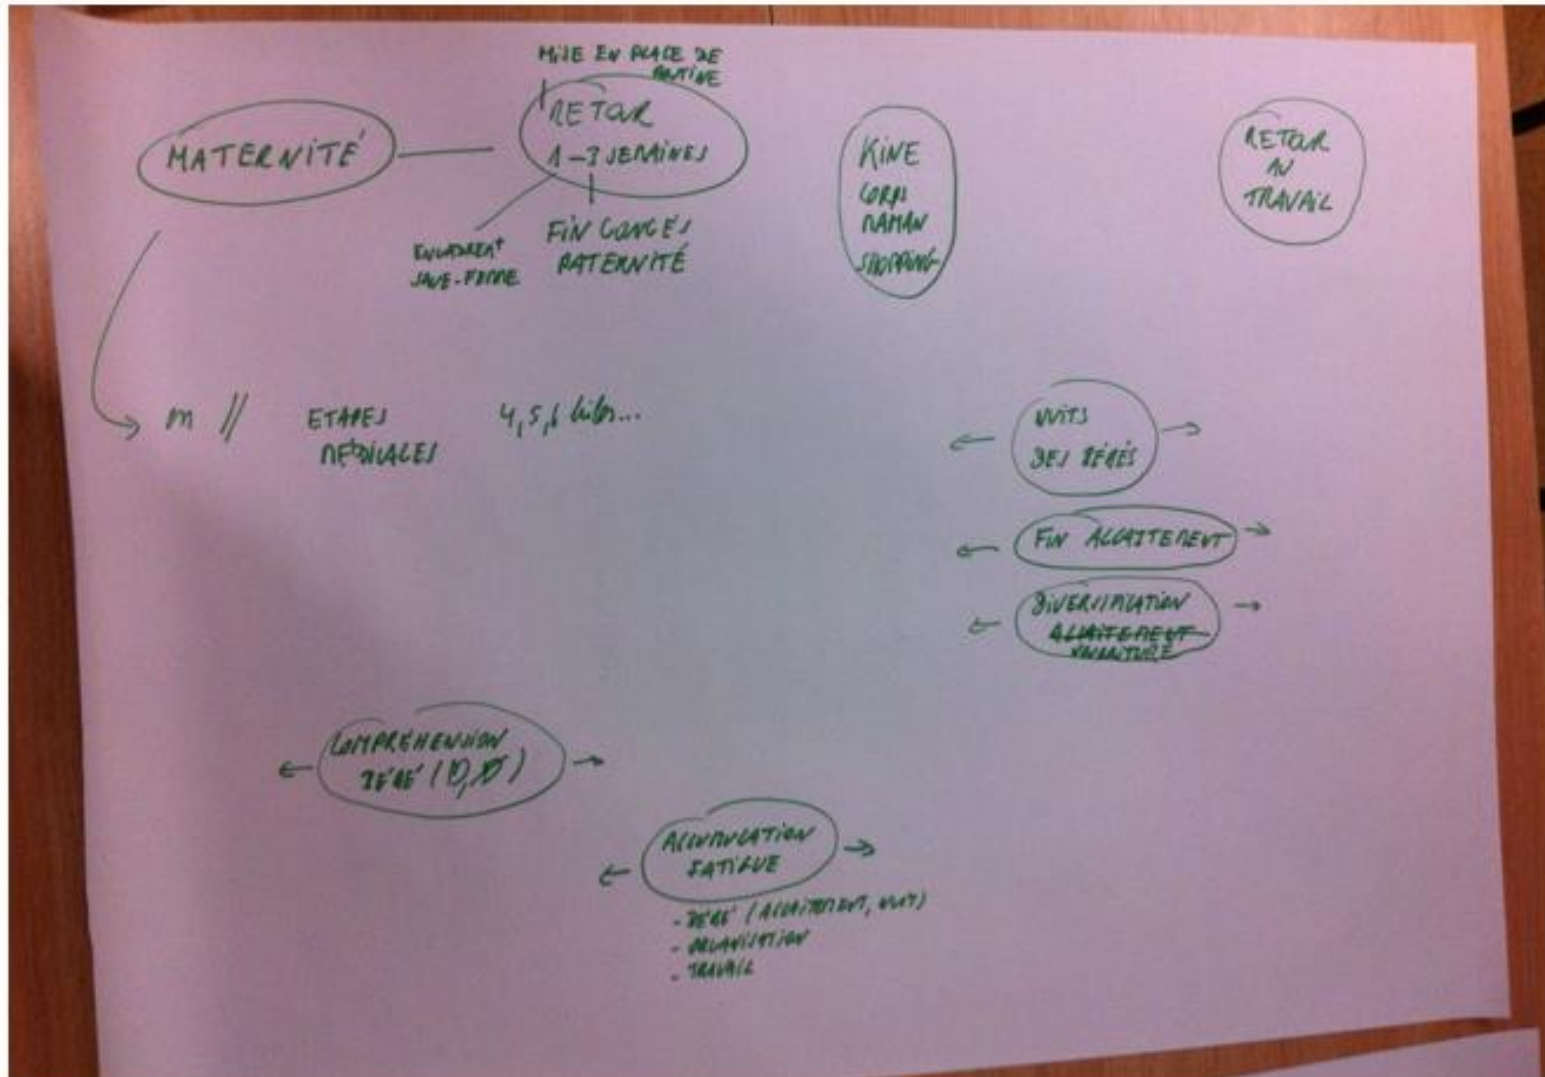 MISE EN PLACE DE
ROUTINE
MATERNITÉ
RETOUR
1-3 SEMAINES
ENCADREMt
SAGE-FEMME
FIN CONGÉS
PATERNITÉ
KINE
CORPS
MAMAN
SHOPPING
RETOUR
AU
TRAVAIL
m //
ETAPES
MÉDICALES
4,5,6 kilos...
NUITS
DES BÉBÉS
FIN ALLAITEMENT
DIVERSIFICATION
ALLAITEMENT
NOURRITURE
COMPRÉHENSION
BÉBÉ
ACCUMULATION
FATIGUE
- BÉBÉ (ALLAITEMENT, NUIT)
- ORGANISATION
- TRAVAIL